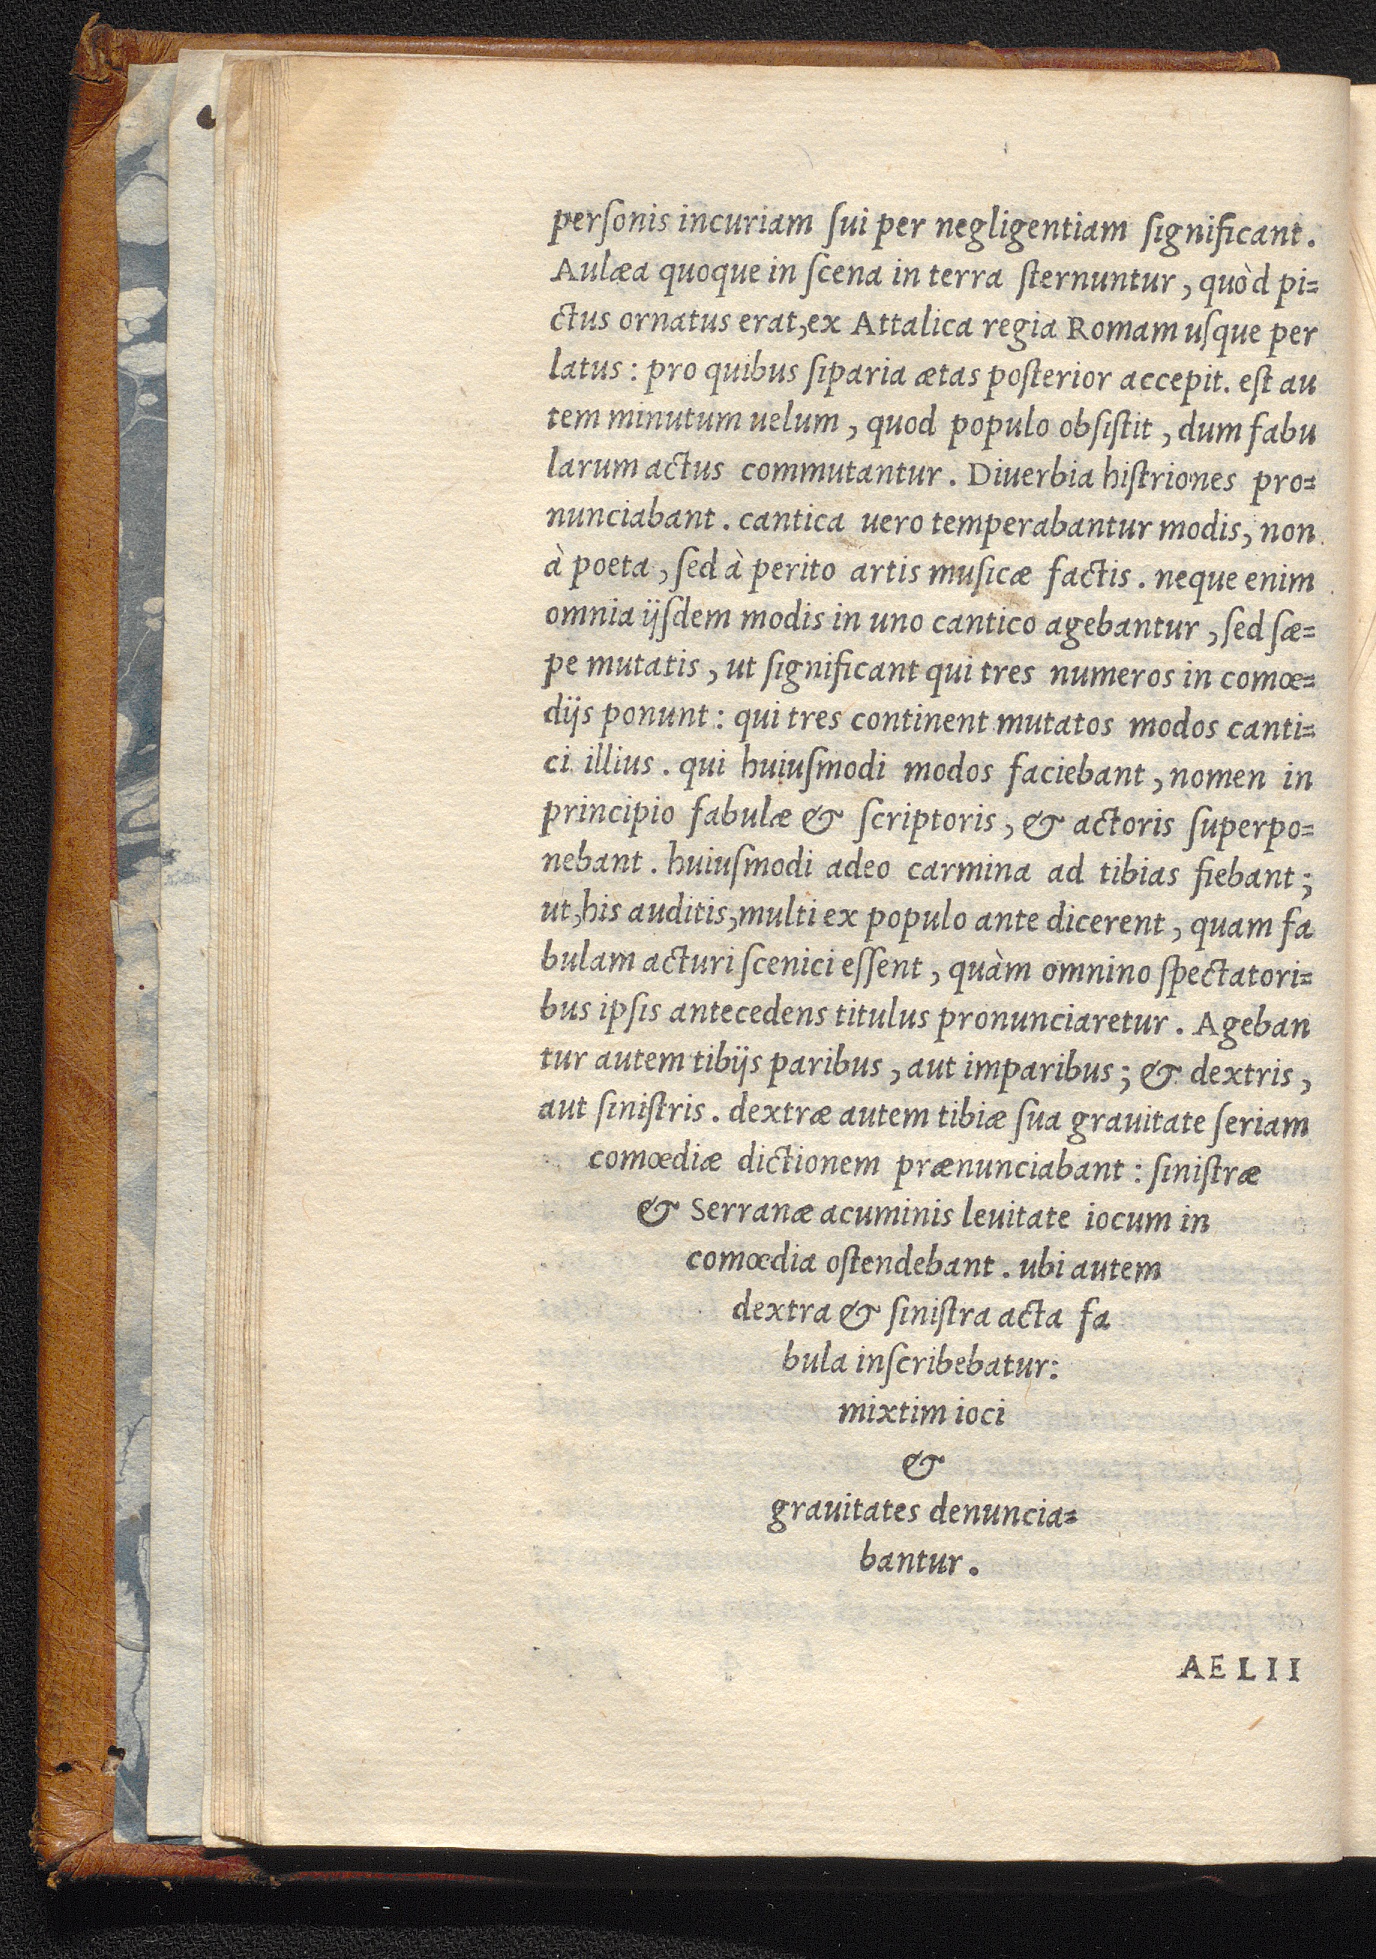 perſonis incuriam ſui per negligentiam ſignificant.
Aulæa quoque in ſcena in terra ſternuntur, quòd pi=
ctus ornatus erat, ex Attalica regia Romam uſque per
latus: pro quibus ſiparia ætas poſterior accepit. eſt au
tem minutum uelum, quod populo obſiſtit, dum fabu
larum actus commutantur. Diuerbia hiſtriones pro=
nunciabant. cantica uero temperabantur modis, non
à poeta, ſed à perito artis muſicæ factis. neque enim
omnia ijſdem modis in uno cantico agebantur, ſed ſæ=
pe mutatis, ut ſignificant qui tres numeros in comœ=
dijs ponunt: qui tres continent mutatos modos canti=
ci illius. qui huiuſmodi modos faciebant, nomen in
principio fabulæ & ſcriptoris, & actoris ſuperpo=
nebant. huiuſmodi adeo carmina ad tibias fiebant;
ut, his auditis, multi ex populo ante dicerent, quam fa
bulam acturi ſcenici eſſent, quàm omnino ſpectatori=
bus ipſis antecedens titulus pronunciaretur. Ageban
tur autem tibijs paribus, aut imparibus; & dextris,
aut ſiniſtris. dextræ autem tibiæ ſua grauitate ſeriam
comœdiæ dictionem prænunciabant: ſiniſtræ
& Serranæ acuminis leuitate iocum in
comœdia oſtendebant. ubi autem
dextra & ſiniſtra acta fa
bula inſcribebatur:
mixtim ioci
&
grauitates denuncia=
bantur.
AELII